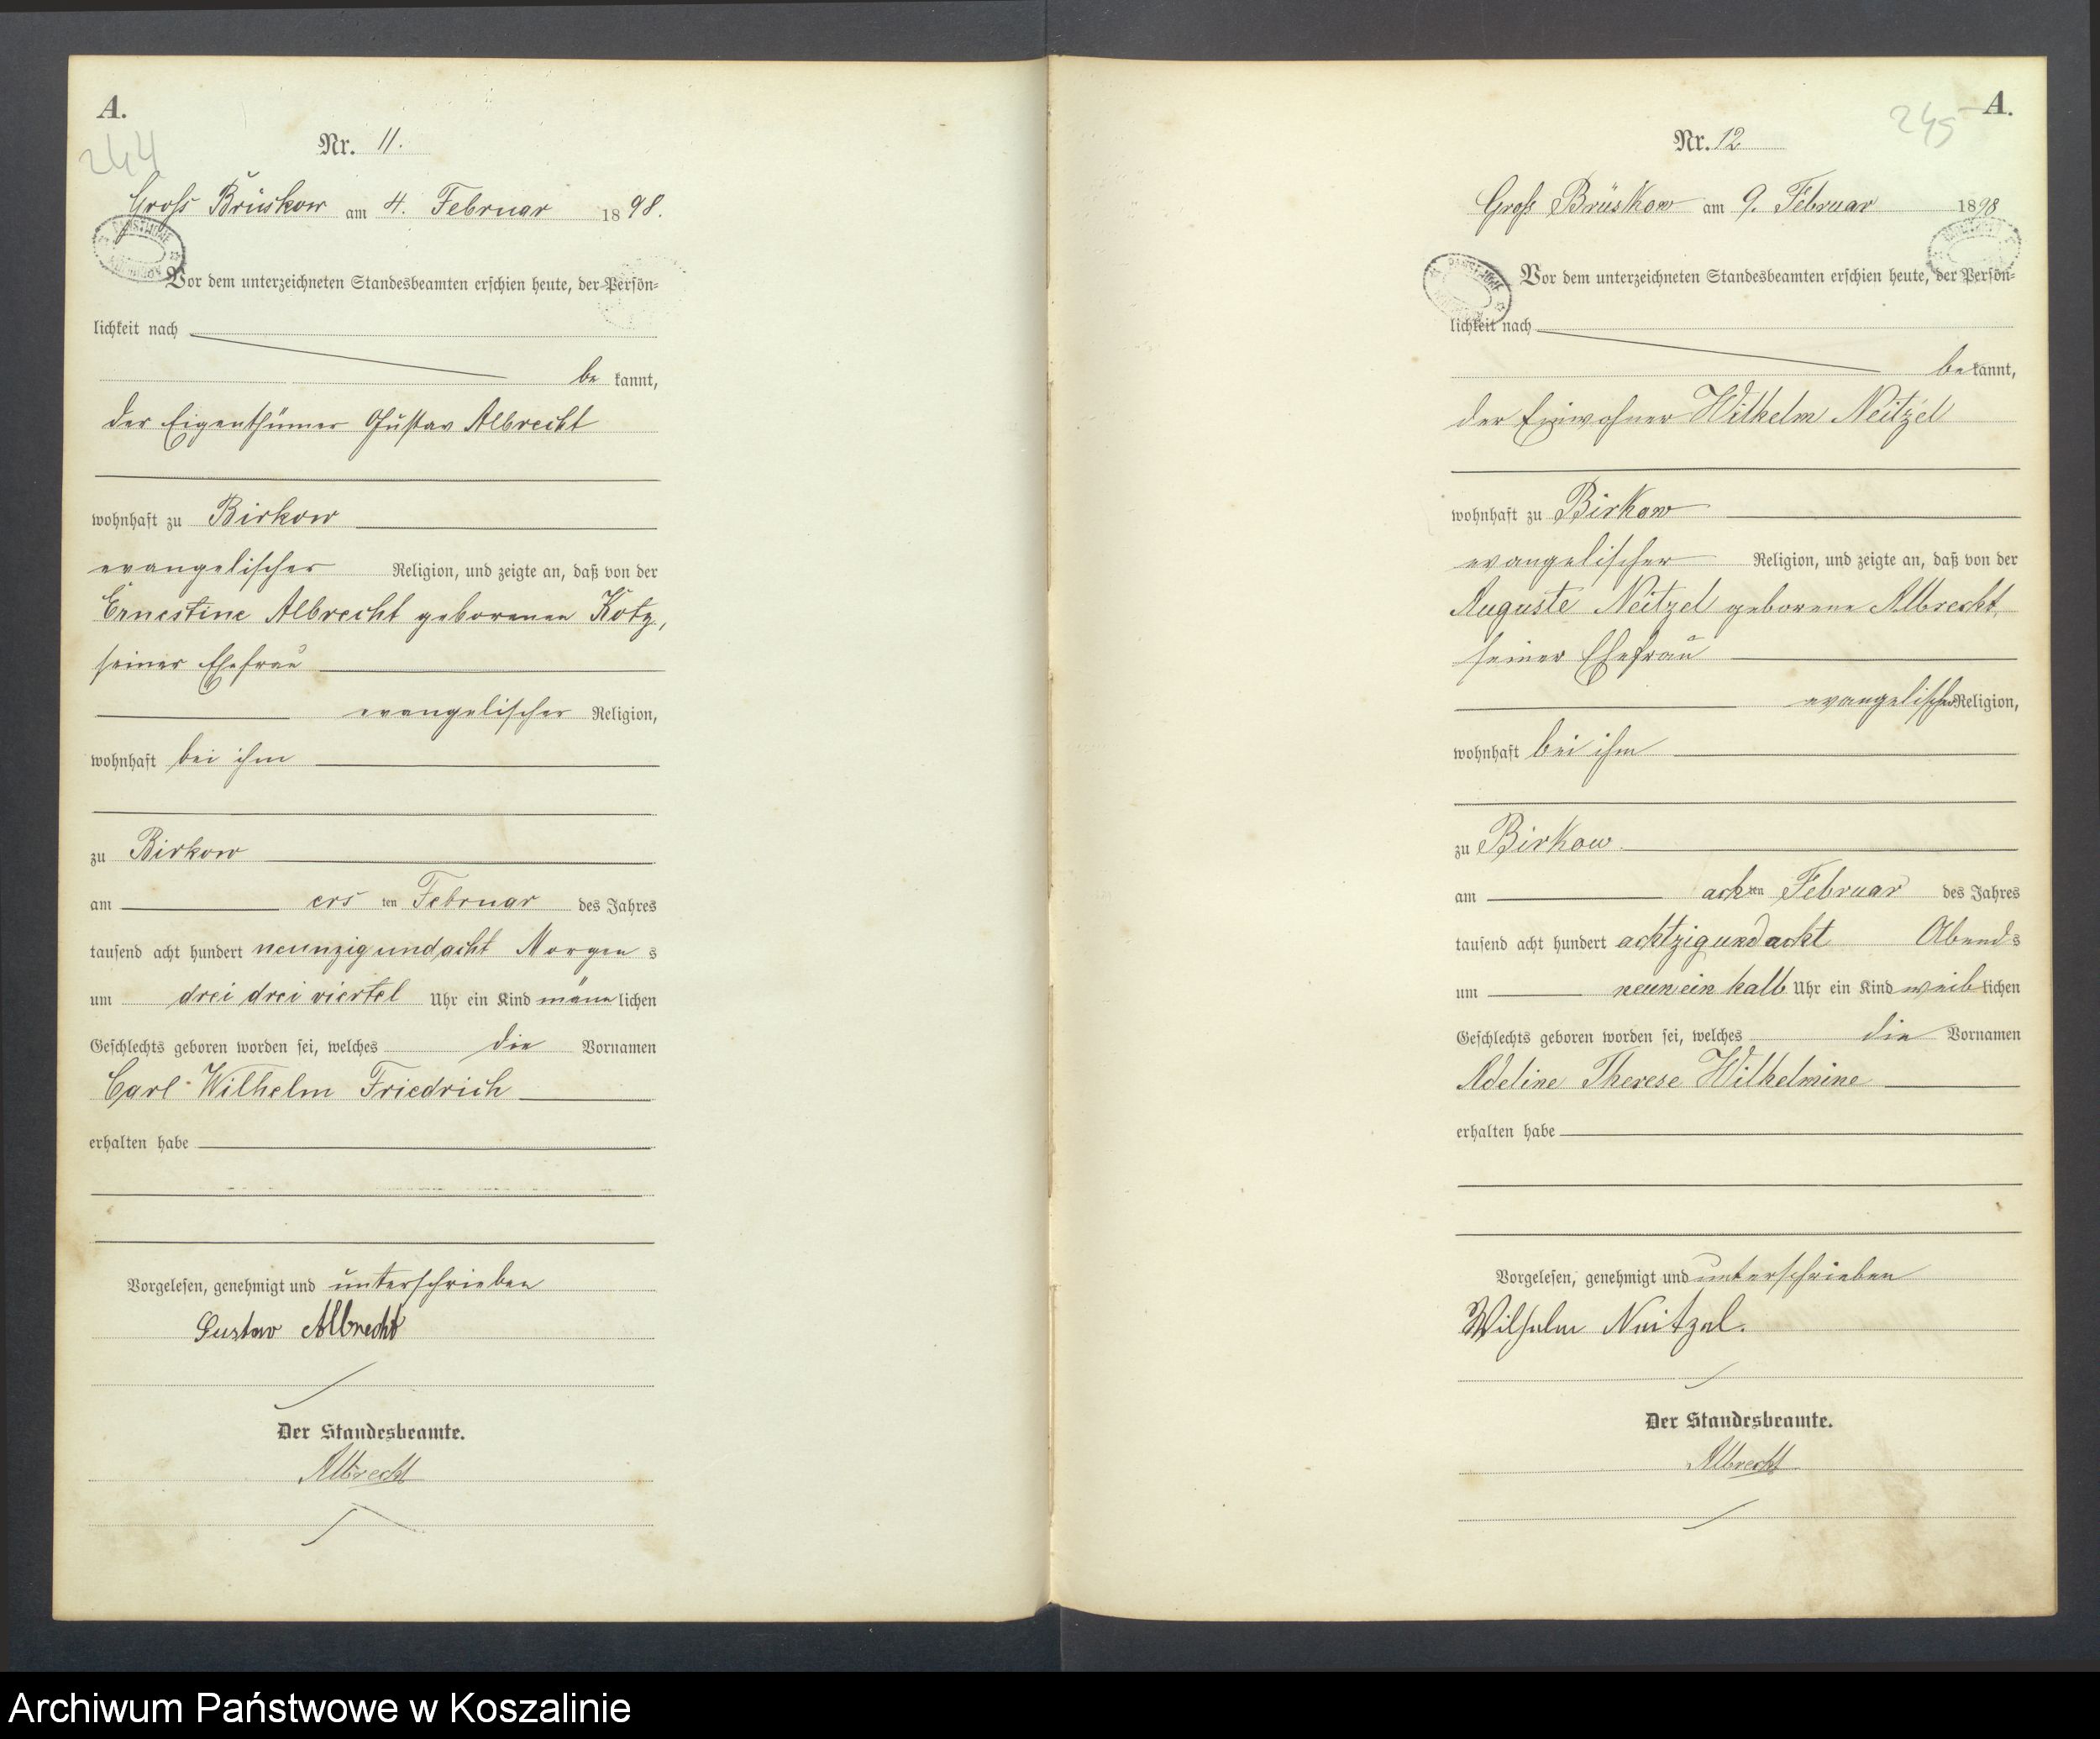 A.
244
Nr. 11.
Gross Brüskow am 4. Februar 1898.
Vor dem unterzeichneten Standesbeamten erschien heute, der Persön-
lichkeit nach
be kannt,
der Eigenthümer Gustav Albrecht
wohnhaft zu Birkow
evangelischer Religion, und zeigte an, daß von der
Ernestine Albrecht geborenen Kotz,
seiner Ehefrau
evangelischer Religion,
wohnhaft bei ihm
zu Birkow
am ers ten Februar des Jahres
tausend acht hundert neunzig und acht Morgen s
um drei drei viertel Uhr ein Kind männ lichen
Geschlechts geboren worden sei, welches die Vornamen
Carl Wilhelm Friedrich
erhalten habe
Vorgelesen, genehmigt und unterschrieben
Gustav Albrecht
Der Standesbeamte.
Albrecht
A.
245
Nr. 12
Gross Brüskow am 9. Februar 1898
Vor dem unterzeichneten Standesbeamten erschien heute, der Persön-
lichkeit nach
be kannt,
der Einwohner Wilhelm Neitzel
wohnhaft zu Birkow
evangelischer Religion, und zeigte an, daß von der
Auguste Neitzel geborene Albrecht,
seiner Ehefrau
evangelischer Religion,
wohnhaft bei ihm
zu Birkow
am ach ten Februar des Jahres
tausend acht hundert achtzig und acht Abend s
um neun ein halb Uhr ein Kind weib lichen
Geschlechts geboren worden sei, welches die Vornamen
Adeline Therese Wilhelmine
erhalten habe
Vorgelesen, genehmigt und unterschrieben
Wilhelm Neitzel.
Der Standesbeamte.
Albrecht
Archiwum Państwowe w Koszalinie